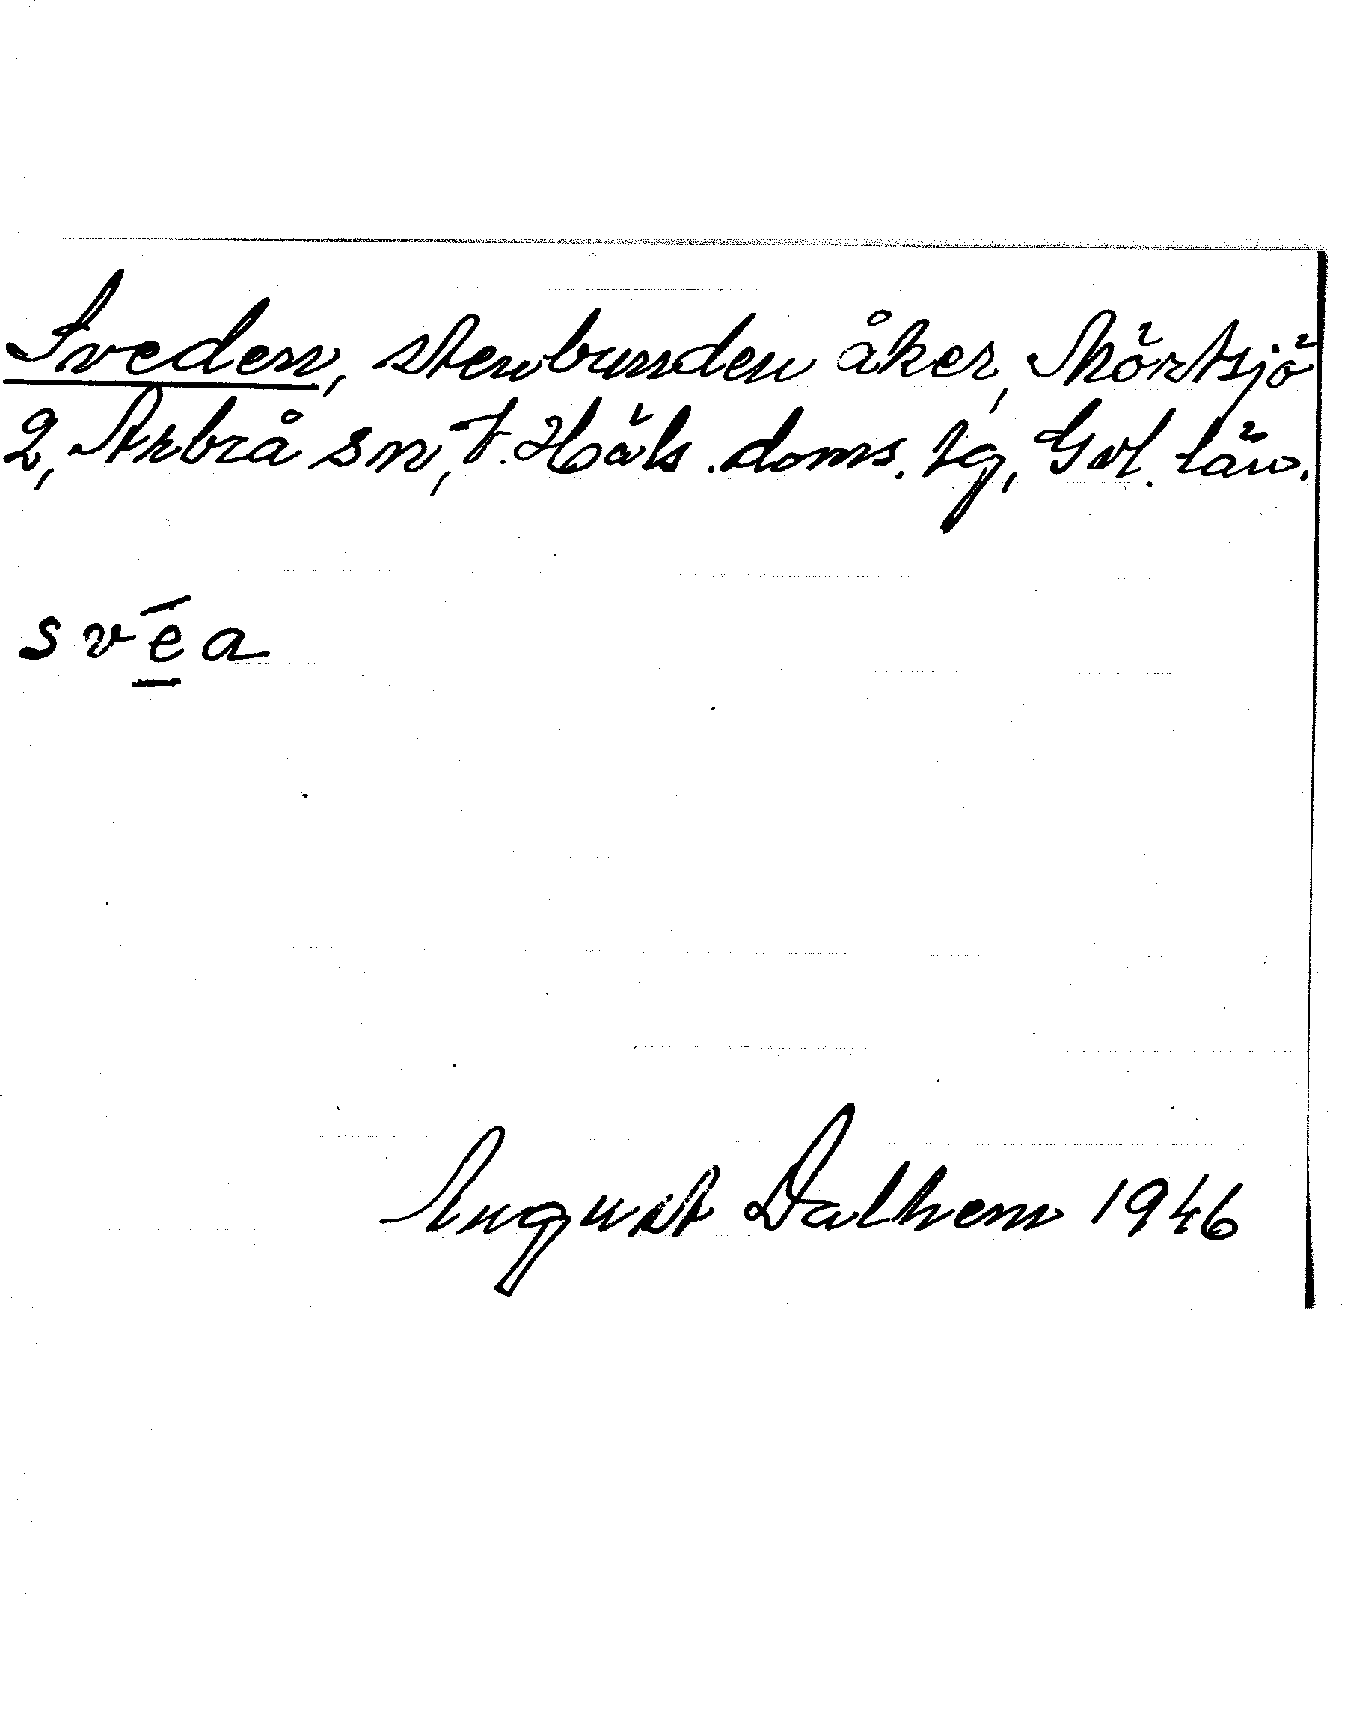 Sveden, stenbunden åker, Mörtsjö
2, Arbrå sn, V. Häls. doms. tg, Gvl. län.
svēa
August Dalhem 1946